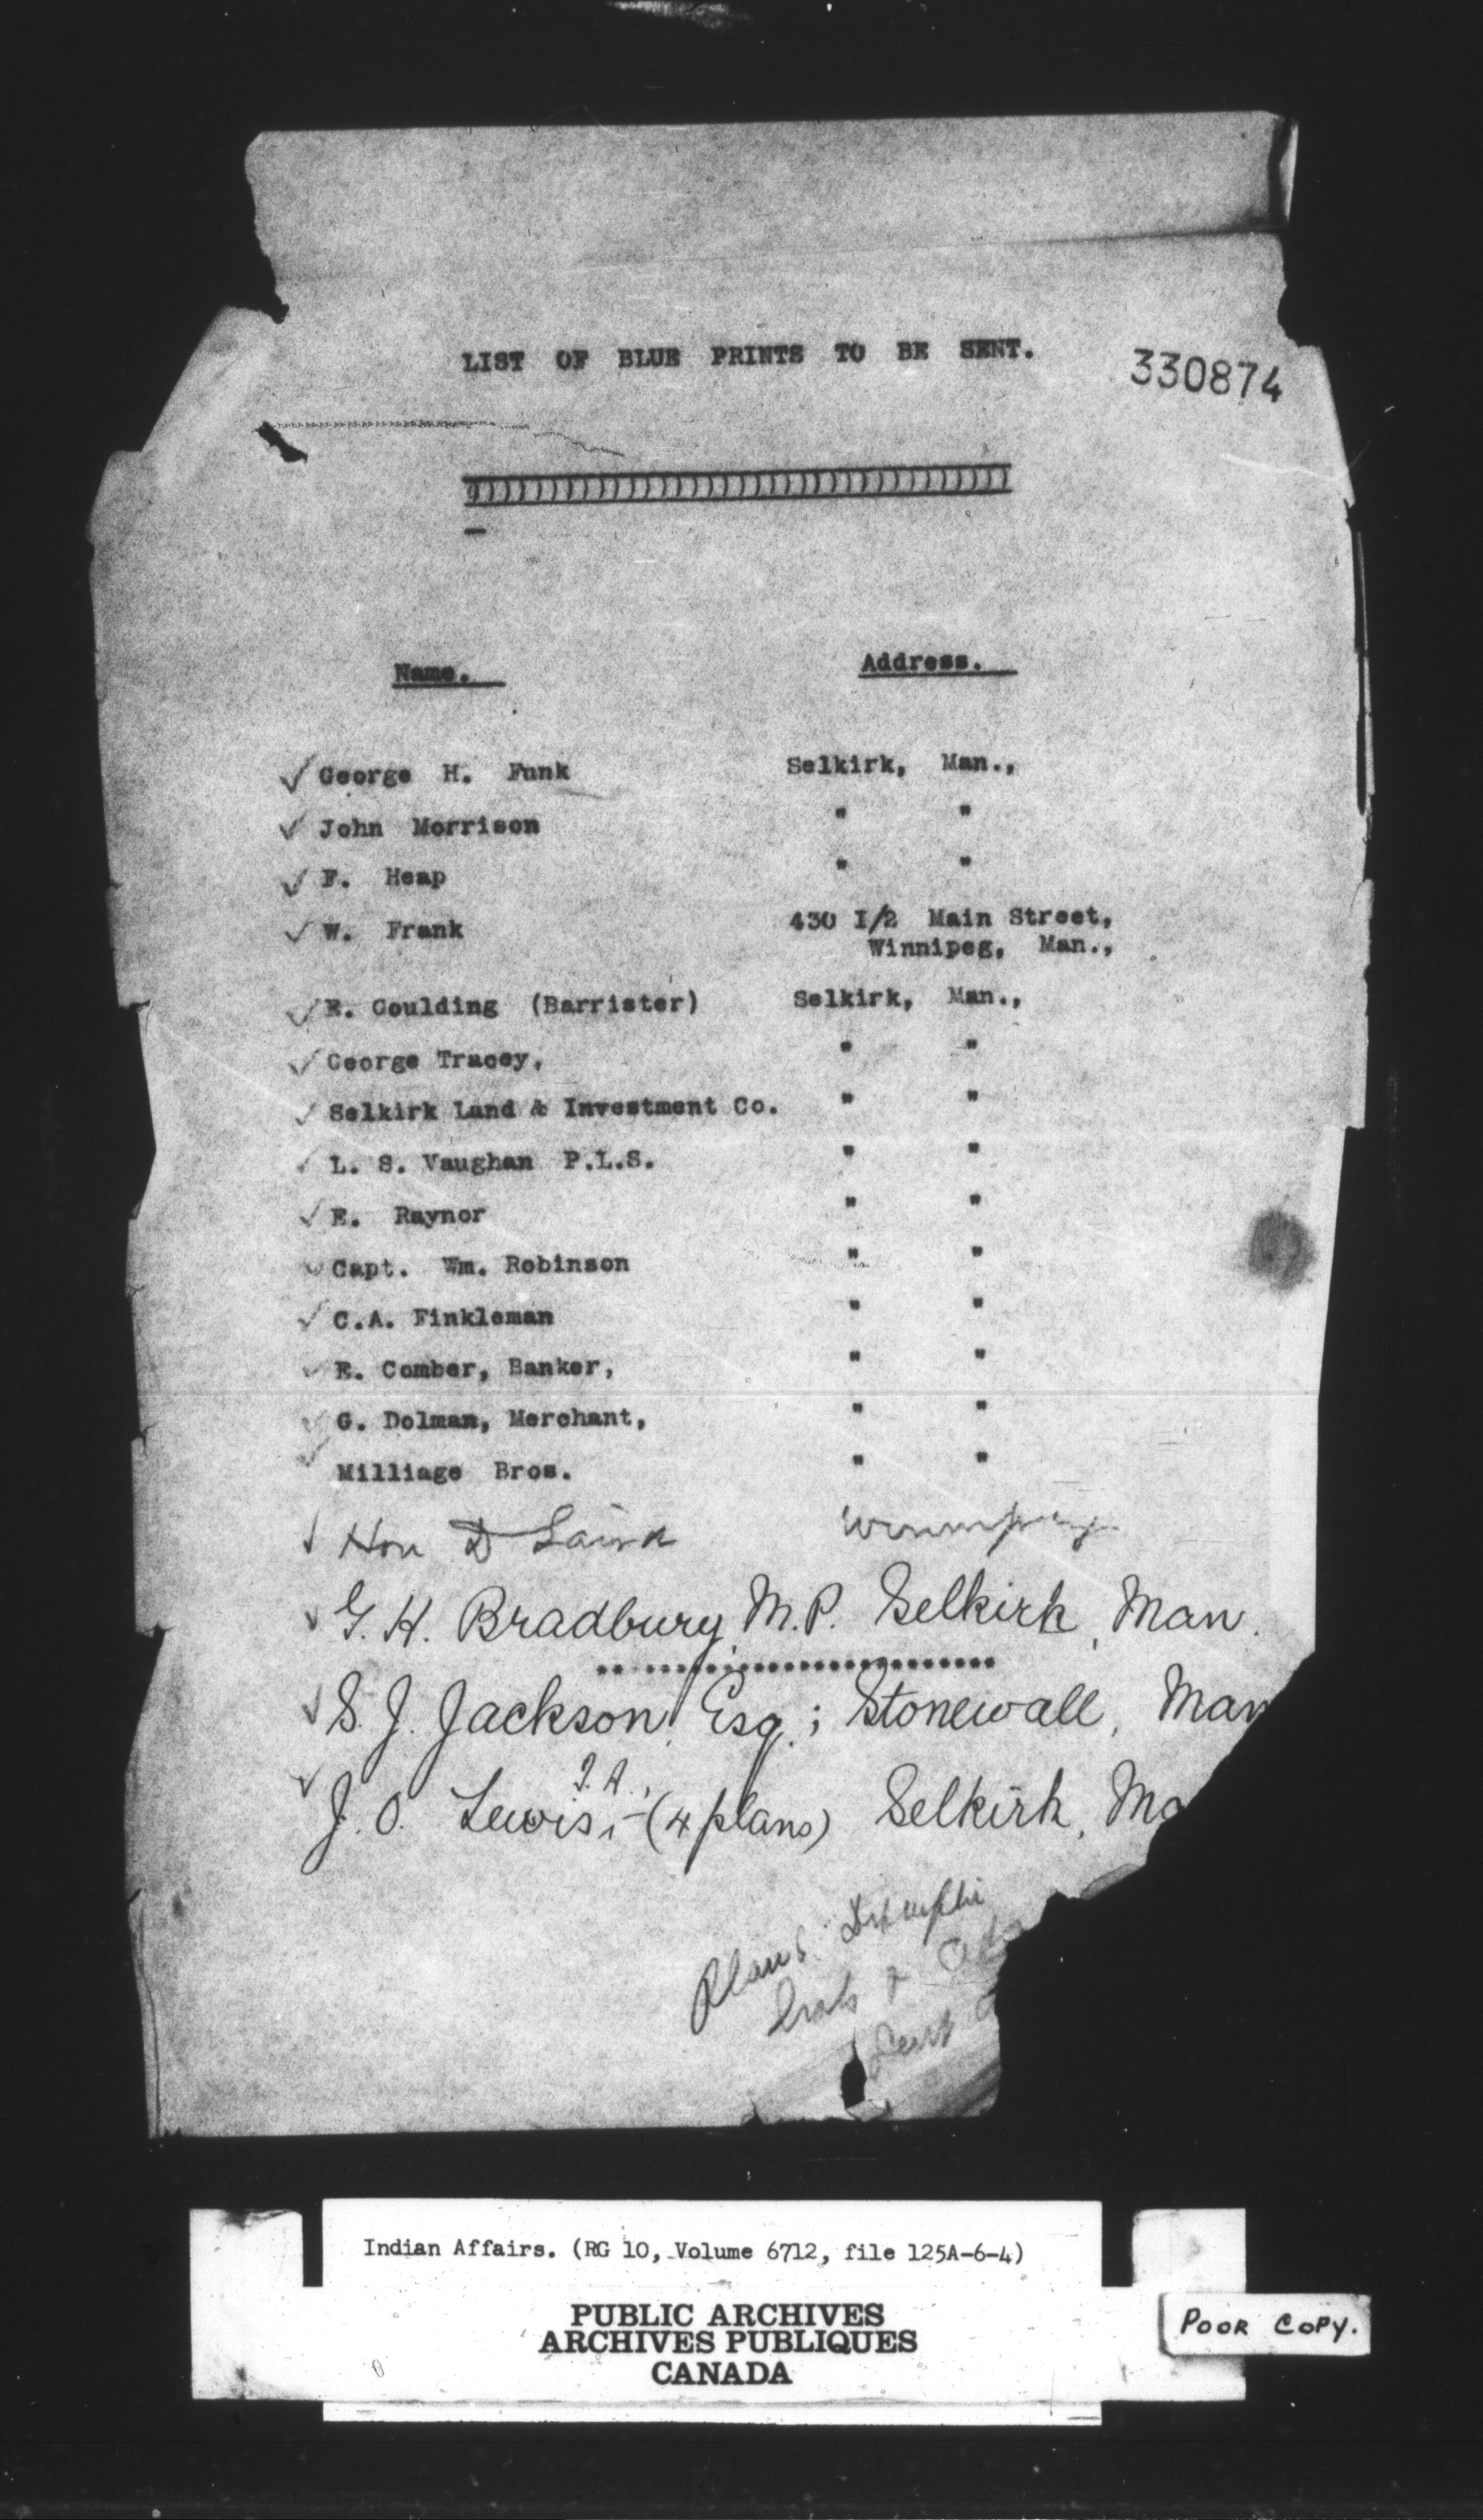 LIST OF BLUE PRINTS TO BE SENT.
330874
Name. Address.
✓ George H. Funk Selkirk, Man.,
✓ John Morrison " "
✓ F. Heap " "
✓ W. Frank 430 I/2 Main Street,
Winnipeg, Man.,
✓ E. Goulding (Barrister) Selkirk, Man.,
✓ George Tracey. " "
✓ Selkirk Land & Investment Co. " "
✓ L. S. Vaughan P.L.S. " "
✓ E. Raynor " "
✓ Capt. Wm. Robinson " "
✓ C.A. Finkleman " "
✓ E. Comber, Banker, " "
✓ G. Dolman, Merchant, " "
✓ Milliage Bros. " "
✓ Hon D Laird Winnipeg
✓ G. H. Bradbury, M.P. Selkirk, Man.
✓ S. J. Jackson, Esq.; Stonewall, Man
✓ J. O. Lewis, I.A., (4 plans) Selkirk, Ma
Plans
Sent
Indian Affairs. (RG 10, Volume 6712, file 125A-6-4)
PUBLIC ARCHIVES
ARCHIVES PUBLIQUES
CANADA
POOR COPY.